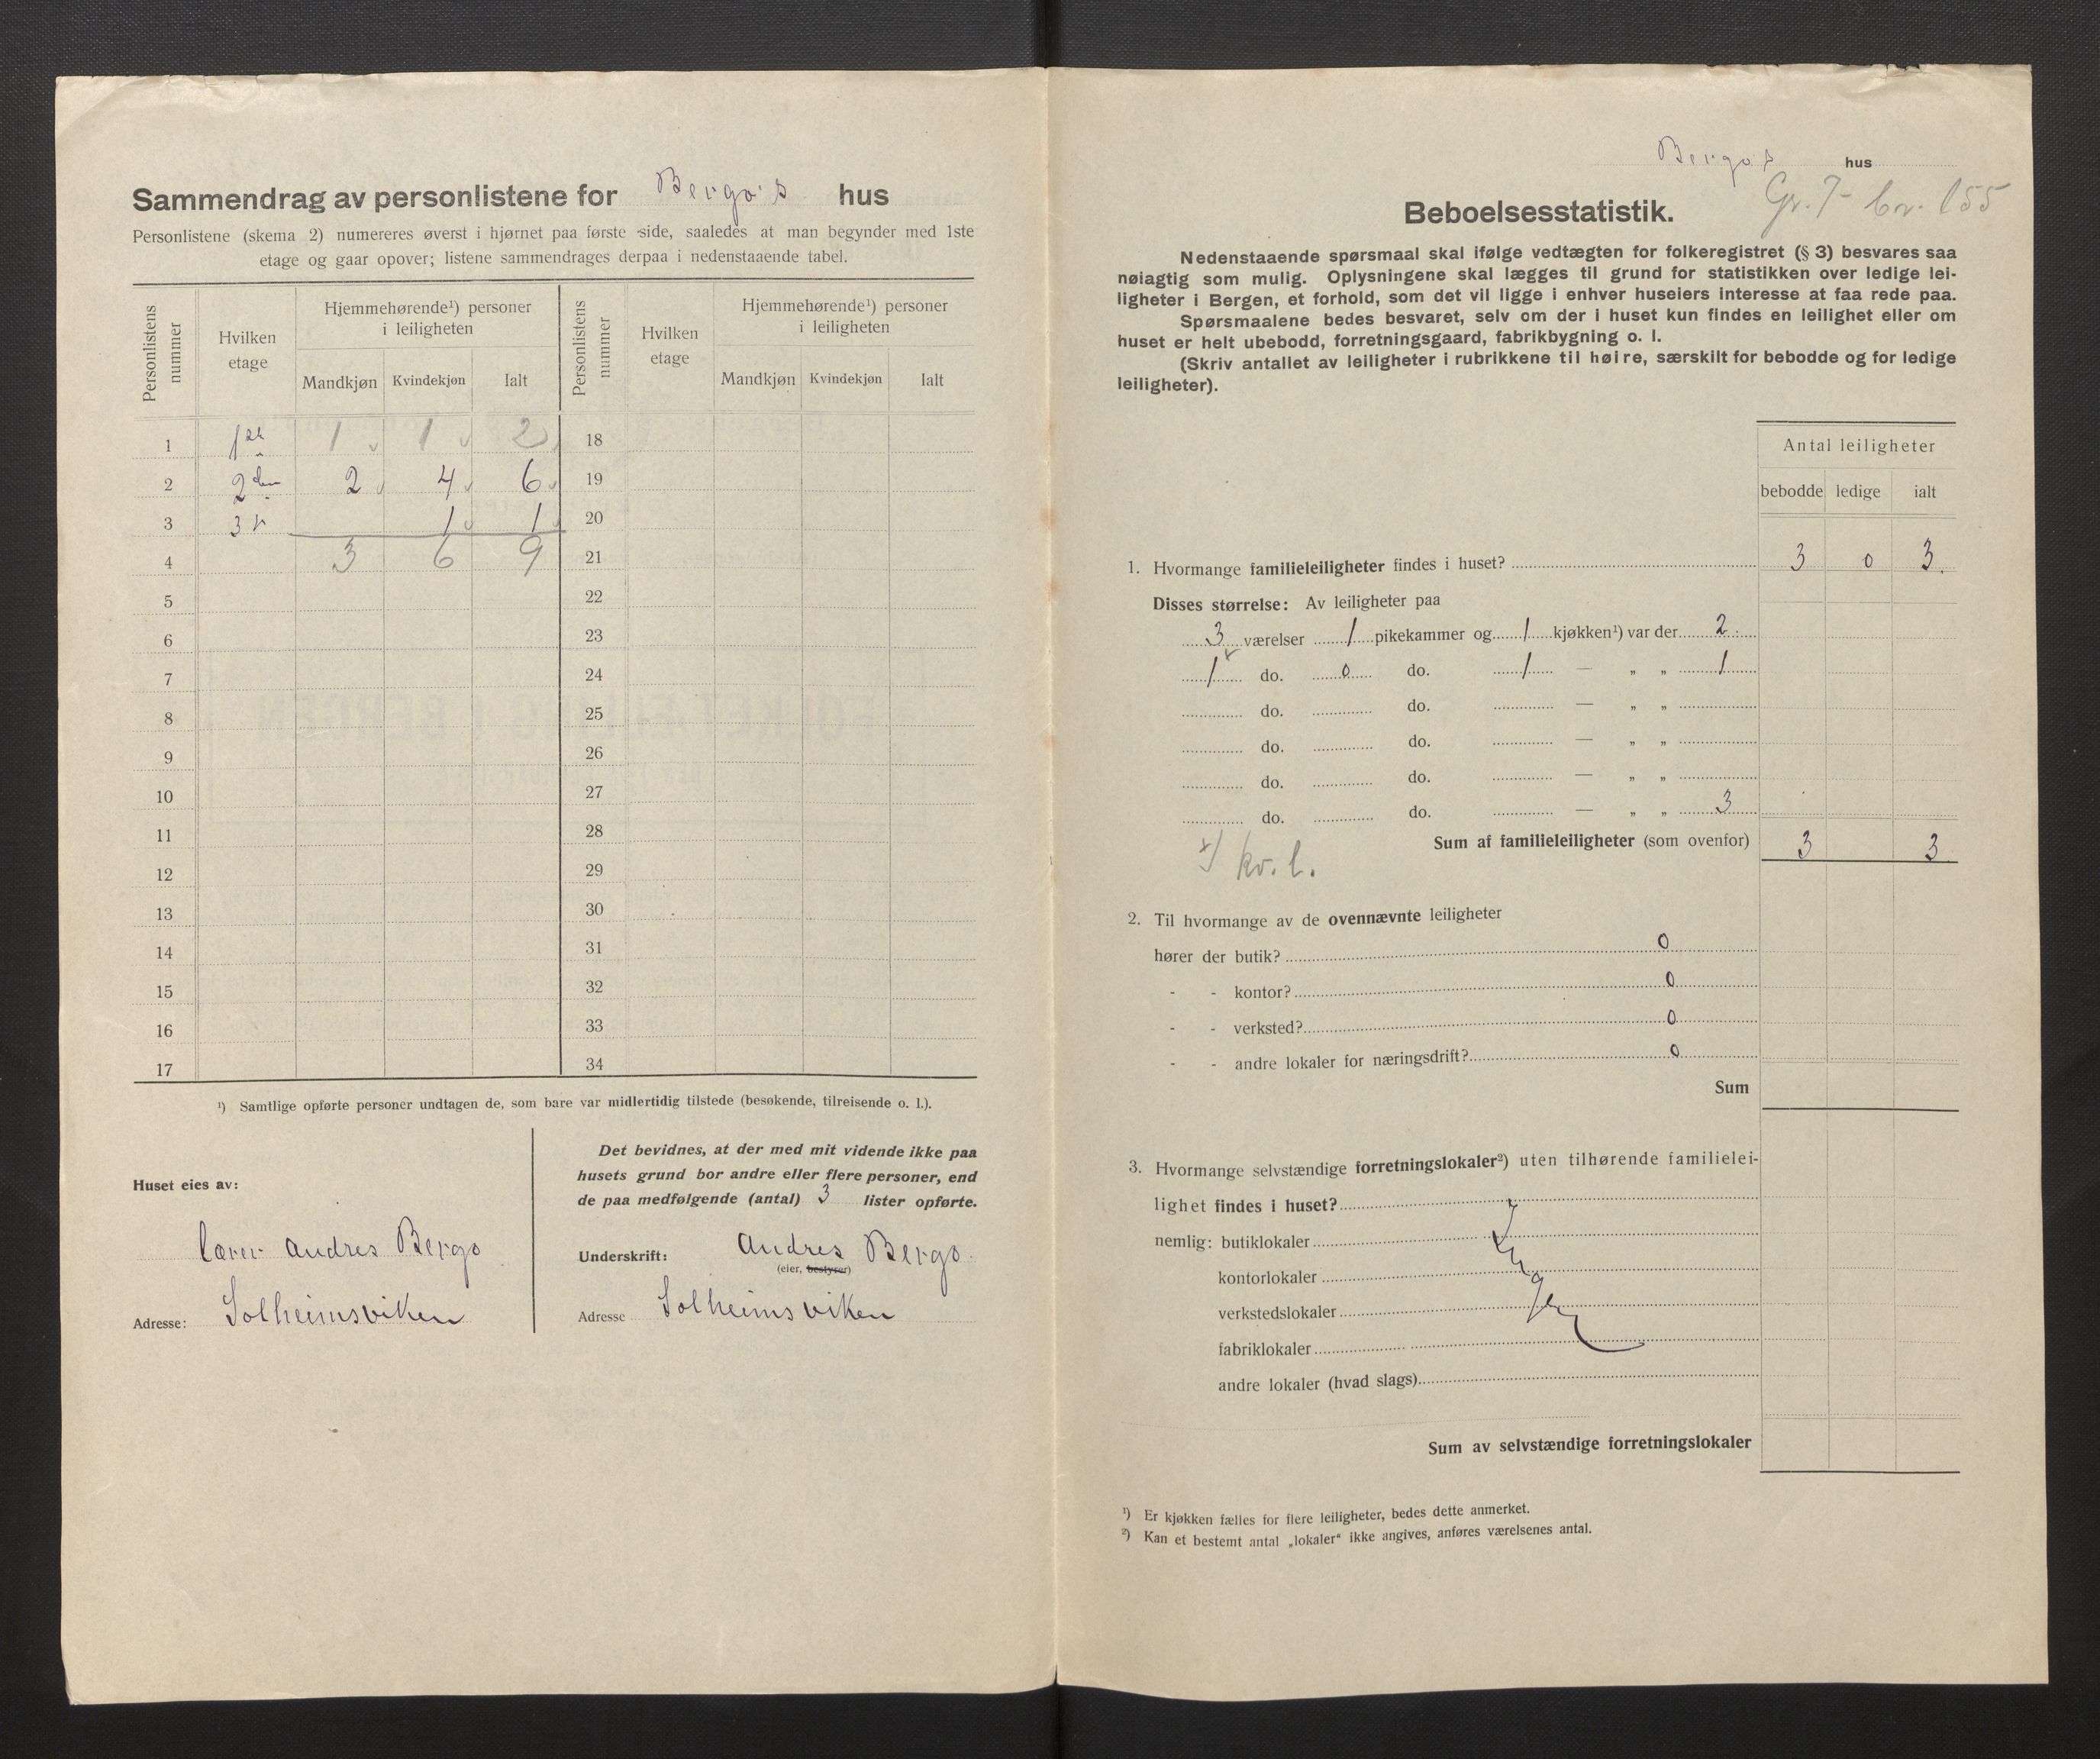 Sammendrag av personlistene for Bergo's hus
Personlistene (skema 2) numereres øverst i hjørnet paa første side, saaledes at man begynder med 1ste
etage og gaar opover; listene sammendrages derpaa i nedenstaaende tabel.
Personlistens nummer
Hvilken etage
Hjemmehørende¹) personer i leiligheten
Mandkjøn Kvindekjøn Ialt
Personlistens nummer
Hvilken etage
Hjemmehørende¹) personer i leiligheten
Mandkjøn Kvindekjøn Ialt
1 1ste 1 1 2 18
2 2den 2 4 6 19
3 3 1 1 20
4 3 6 9 21
5 22
6 23
7 24
8 25
9 26
10 27
11 28
12 29
13 30
14 31
15 32
16 33
17 34
¹) Samtlige opførte personer undtagen de, som bare var midlertidig tilstede (besøkende, tilreisende o. l.).
Huset eies av:
Lærer Andres Bergo
Adresse: Solheimsviken
Det bevidnes, at der med mit vidende ikke paa
husets grund bor andre eller flere personer, end
de paa medfølgende (antal) 3 lister opførte.
Underskrift: Andres Bergo
(eier, bestyrer)
Adresse Solheimsviken
Bergo's hus
Gr. 7 br. 155
Beboelsesstatistik.
Nedenstaaende spørsmaal skal ifølge vedtægten for folkeregistret (§ 3) besvares saa
nøiagtig som mulig. Oplysningene skal lægges til grund for statistikken over ledige lei-
ligheter i Bergen, et forhold, som det vil ligge i enhver huseiers interesse at faa rede paa.
Spørsmaalene bedes besvaret, selv om der i huset kun findes en leilighet eller om
huset er helt ubebodd, forretningsgaard, fabrikbygning o. l.
(Skriv antallet av leiligheter i rubrikkene til høire, særskilt for bebodde og for ledige
leiligheter).
Antal leiligheter
bebodde ledige ialt
1. Hvormange familieleiligheter findes i huset? 3 0 3
Disses størrelse: Av leiligheter paa
3 værelser 1 pikekammer og 1 kjøkken¹) var der 2
1 x do. 0 do. 1 — „ „ 1
do. do. — „ „
do. do. — „ „
do. do. — „ „
do. do. — „ „ 3
Sum af familieleiligheter (som ovenfor) 3 3
x) kv. l.
2. Til hvormange av de ovennævnte leiligheter
hører der butik? 0
- - kontor? 0
- - verksted? 0
- - andre lokaler for næringsdrift? 0
Sum
3. Hvormange selvstændige forretningslokaler²) uten tilhørende familielei-
lighet findes i huset?
nemlig: butiklokaler
Ingen
kontorlokaler
verkstedslokaler
fabriklokaler
andre lokaler (hvad slags)
Sum av selvstændige forretningslokaler
¹) Er kjøkken fælles for flere leiligheter, bedes dette anmerket.
²) Kan et bestemt antal „lokaler“ ikke angives, anføres værelsenes antal.